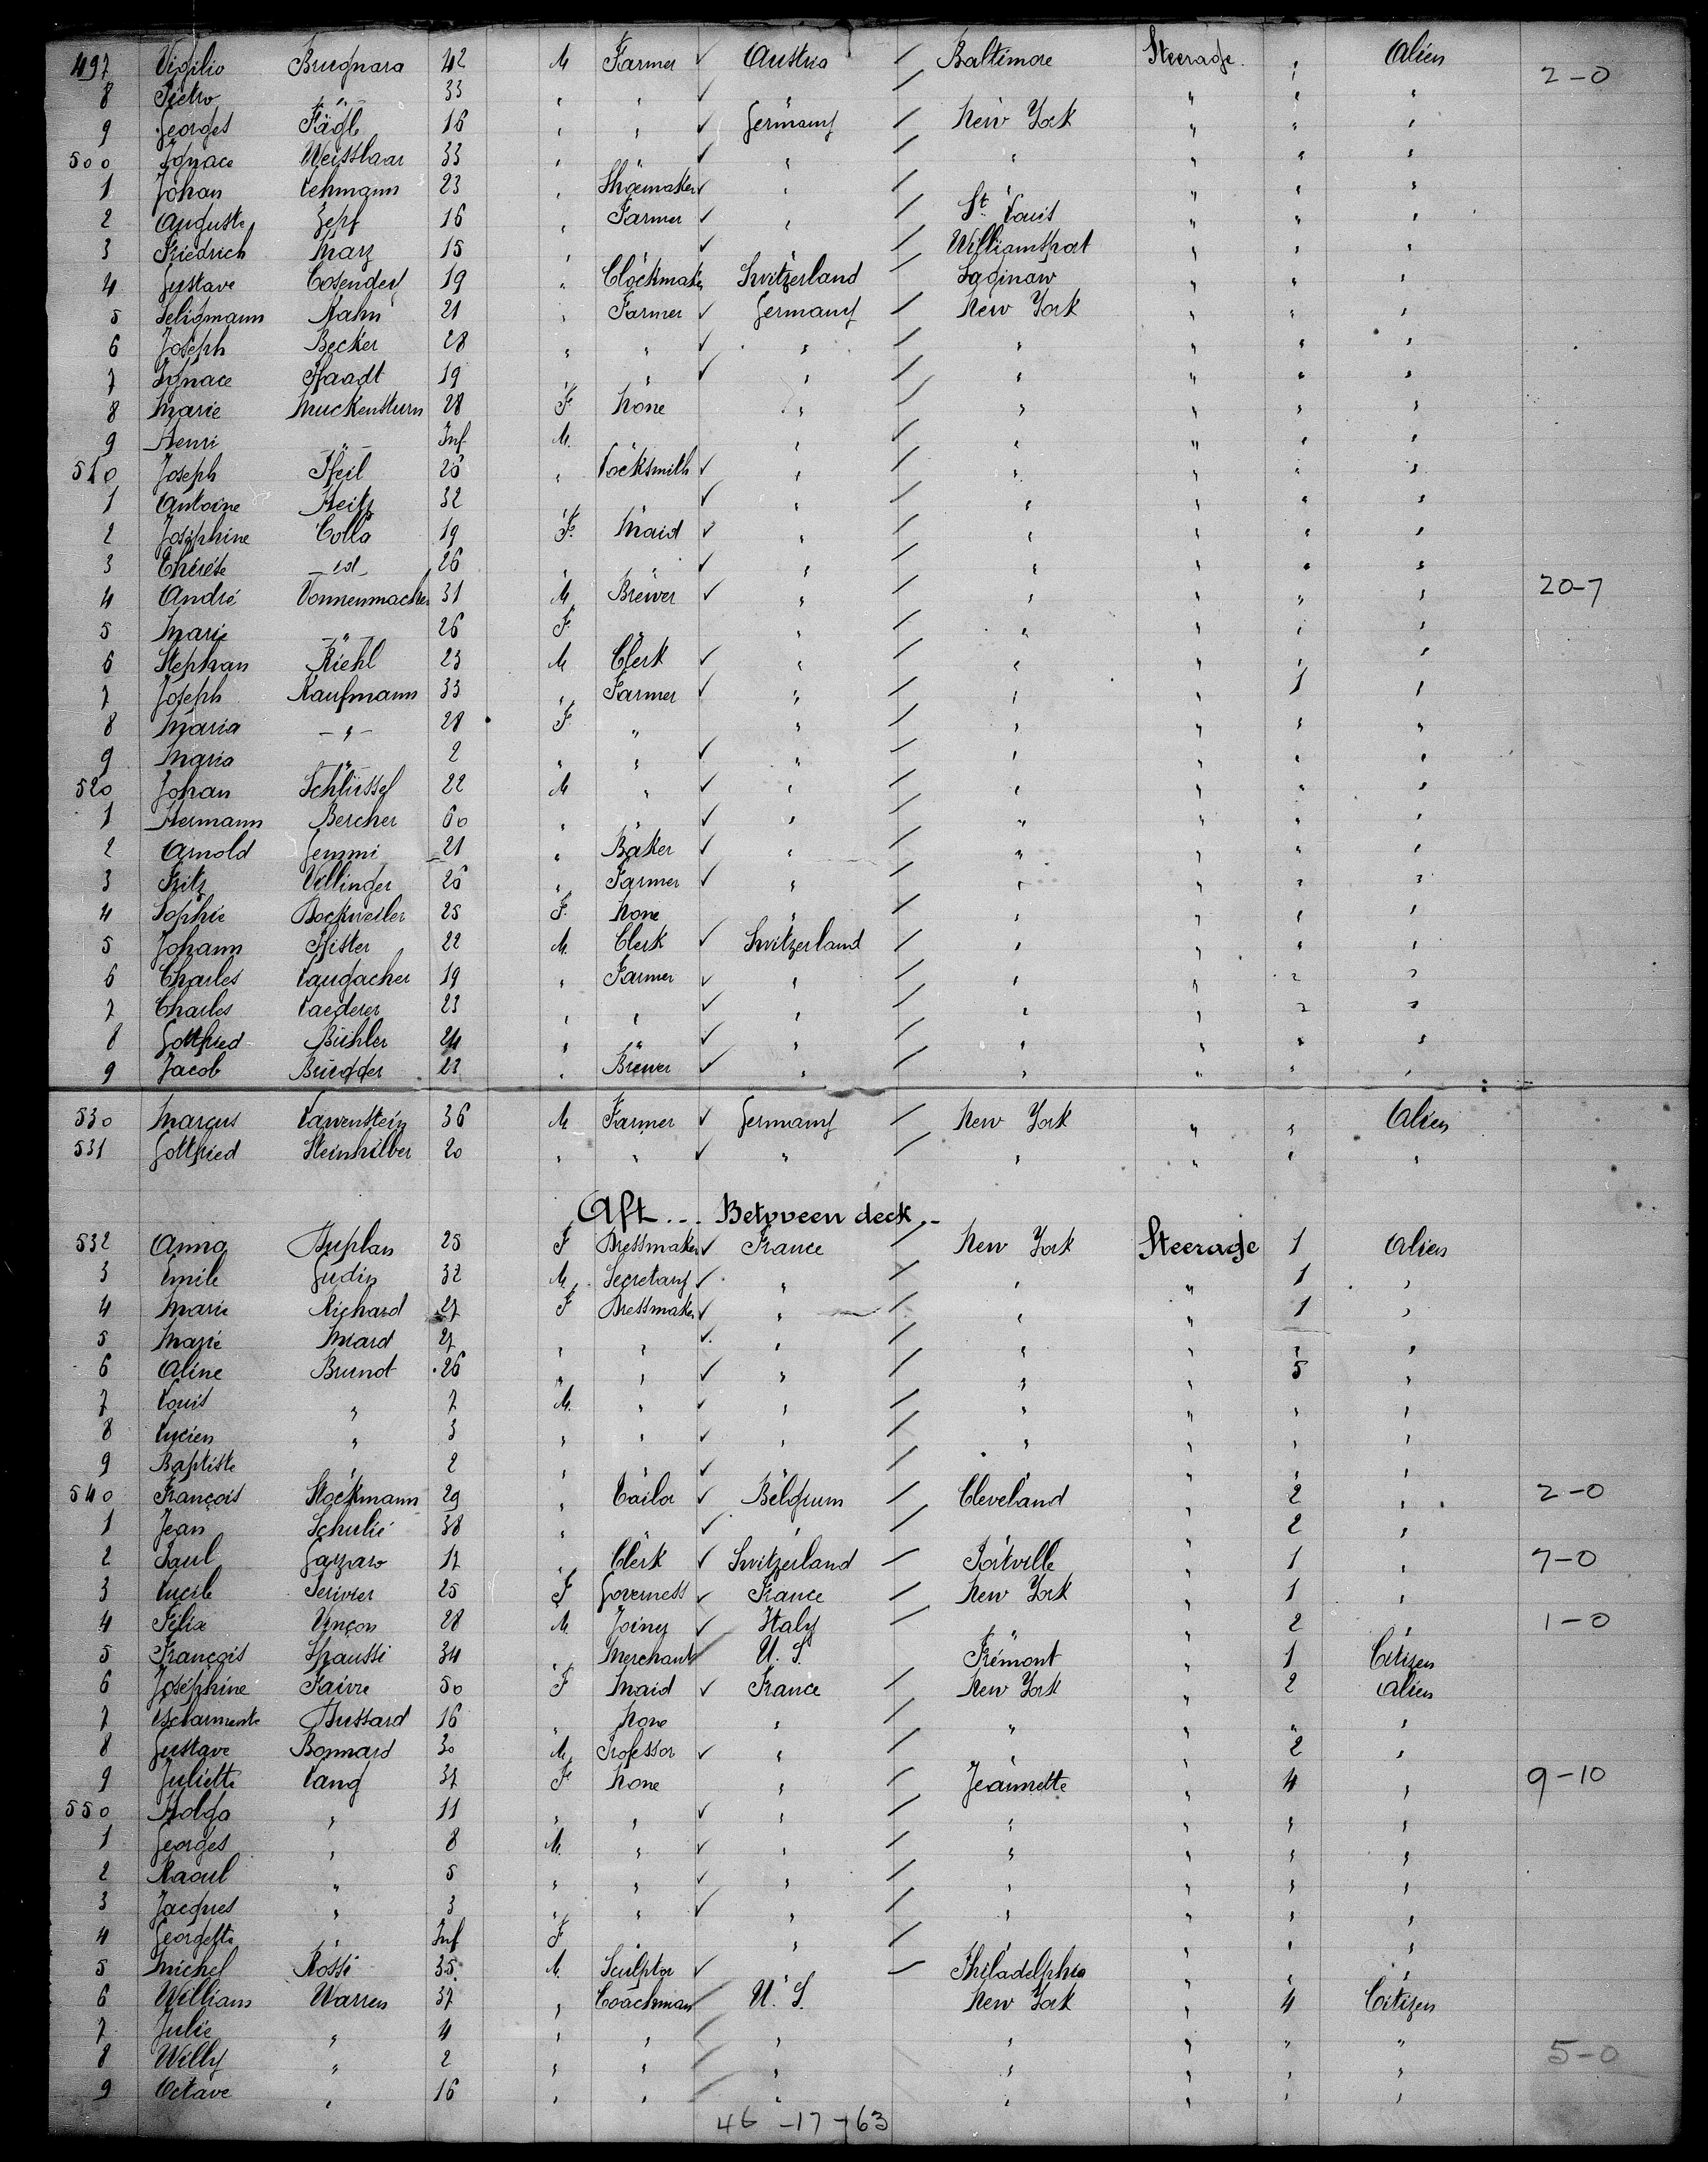 497 Vigilio Brugnara 42 M Farmer ✓ Austria / Baltimore Steerage " Alien
8 Pietro -"- 33 " " ✓ " / " " " " 2-0
9 Georges Fägle 16 " " ✓ Germany / New York " " "
500 Ignace Weisshaar 33 " " ✓ " / " " " "
1 Johan Lehmann 23 " Shoemaker ✓ " / " " " "
2 Auguste Zepf 16 " Farmer ✓ " / St. Louis " " "
3 Friedrich Marz 15 " " ✓ " / Williamsport " " "
4 Gustave Cosendey 19 " Clockmak Switzerland / Saginaw " " "
5 Seligmann Kahn 21 " Farmer ✓ Germany / New York " " "
6 Joseph Becker 28 " " ✓ " / " " " "
7 Ignace Haadt 19 " " ✓ " / " " " "
8 Marie Muckensturm 28 F None " / " " " "
9 Henri -"- Inf M. " / " " " "
510 Joseph Pfeil 26 " Locksmith ✓ " / " " " "
1 Antoine Heitz 32 " " ✓ " / " " " "
2 Joséphine Colla 19 F. Maid ✓ " / " " " "
3 Thérèse -id- 26 " " ✓ " / " " " "
4 André Vonnenmacher 31 M Brewer ✓ " / " " " " 20-7
5 Marie -"- 26 F " " / " " " "
6 Stephan Riehl 23 M Clerk ✓ " / " " " "
7 Joseph Kaufmann 33 " Farmer ✓ " / " " 1 "
8 Maria -"- 28 F " " / " " " "
9 Maria -"- 2 " " ✓ " / " " " "
520 Johan Schlüssel 22 M " ✓ " / " " " "
1 Hermann Bercher 60 " " ✓ " / " " " "
2 Arnold Jemmi 21 " Baker ✓ " / " " " "
3 Fritz Villinger 26 " Farmer ✓ " / " " " "
4 Sophie Bockweiler 25 F. None " / " " " "
5 Johann Pfister 22 M. Clerk ✓ Switzerland / " " " "
6 Charles Laugacher 19 " Farmer ✓ " / " " " "
7 Charles Laederer 23 " " ✓ " / " " " "
8 Gottfried Bühler 24 " " ✓ " / " " " "
9 Jacob Bruegger 23 " Brewer ✓ " / " " " "
530 Marcus Lawenstein 36 M Farmer ✓ Germany / New York " " Alien
531 Gottfried Steinhilber 20 " " ✓ " / " " " "
Aft... Betvveen deck..
532 Anna Duplan 25 F Dressmaker ✓ France / New York Steerage 1 Alien
3 Emile Gudin 32 M. Secretary ✓ " / " " 1 "
4 Marie Richard 27 F Dressmaker ✓ " / " " 1 "
5 Marie Miard 27 " " ✓ " / " " " "
6 Aline Brunot 26 " " ✓ " / " " 5 "
7 Louis " 7 M. " ✓ " / " " " "
8 Lucien " 3 " " ✓ " / " " " "
9 Baptiste " 2 " " ✓ / " " "
540 François Stockmann 29 " Tailor ✓ Belgium / Cleveland " 2 " 2-0
1 Jean Schulié 38 " ✓ " / " 2 "
2 Paul Gazzaro 17 " Clerk ✓ Switzerland / Portville " 1 " 7-0
3 Lucile Perivier 25 F Governess ✓ France / New York " 1 "
4 Félix Vinçon 28 M. Joiny ✓ Italy / " " 2 " 1-0
5 François Spaussi 34 " Merchant U. S. Frémont " 1 Citizen
6 Joséphine Faivre 50 F Maid ✓ France / New York " 2 Alien
7 Dussard 16 " None " / " " " "
8 Gustave Bonnard 30 M. Professor ✓ " / " " 2 "
9 Juliette Lang 37 F None " / Jeannette " 4 " 9-10
550 Holga " 11 " " ✓ " / " " " "
1 Georges " 8 M. " ✓ " / " " " "
2 Raoul " 5 " " ✓ " / " " " "
3 Jacques " 3 " " ✓ " / " " " "
4 Georgette " Inf F " " / " " " "
5 Michel Rossi 35 M. Sculptor ✓ / Philadelphia " " "
6 William Warren 37 " Coachman U. S. New York " 4 Citizen
7 Julie " 4 " " " " " " "
8 Willy " 2 " " " " " " " 5-0
9 Octave " 16 " " " " " " "
46 -17-163